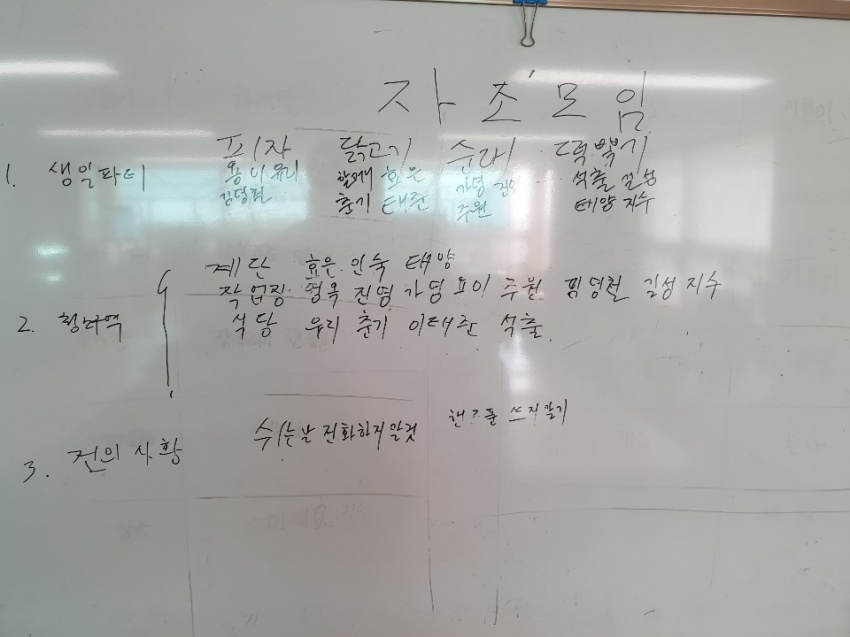 자조모임
1. 생일파티 피자 닭고기 순대 떡볶기
용이 유리 효은 가영 석출
김영철 춘기 태준 주원 태양 지수
계단 효은 인숙 태양
작업장 영옥 진영 가영 용이 주원 김영철 김성 지수
2. 청소구역 식당 유리 춘기 이태준 석출
3. 건의 사항 쉬는날 전화하지말것 핸드폰 쓰지말기